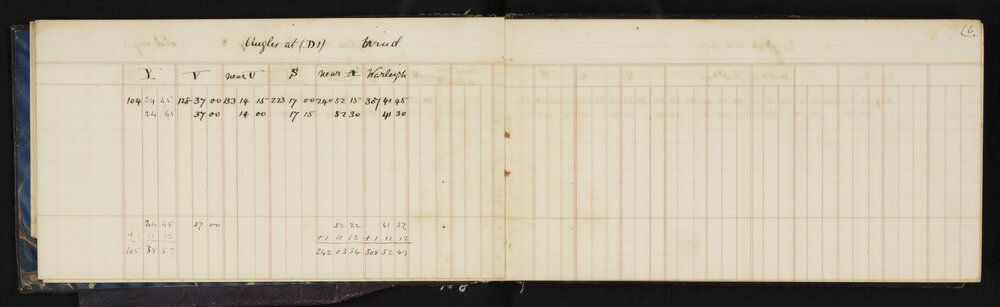 (6.
Angles at (D1) Wind
Y V near U S near R Warleigh
104 24 45 128 37 00 153 14 15 223 17 00 240 52 15 307 41 45
24 45 37 00 14 00 17 15 52 30 41 30
24 45 37 00 52 22 41 37
+1 11 12 +1 11 12 +1 11 12
105 35 57 242 03 34 308 52 49